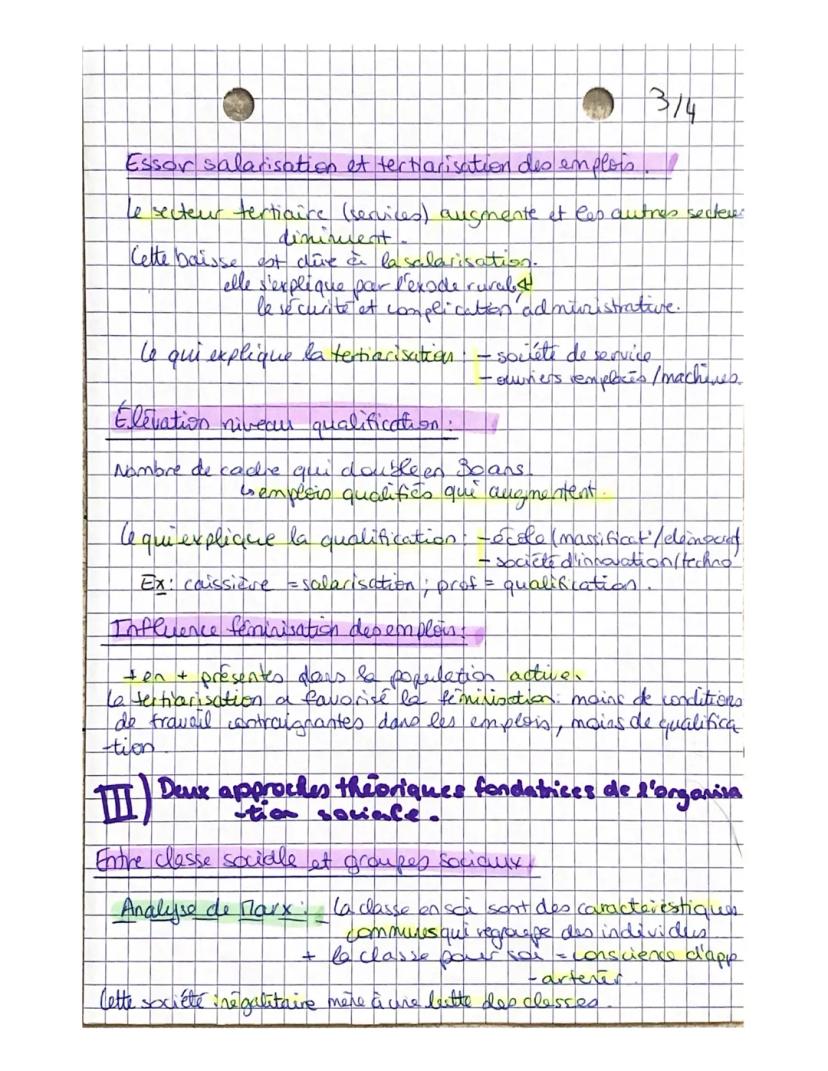 3/4
Essor salarisation et tertiarisation des emplois.
Le secteur tertiaire (services) augmente et les autres secteu
diminuent.
Cette baisse est dûe à la salarisation.
elle s'explique par l'exode rural,
la sécurité et complication administrative.
Ce qui explique la tertiarisation : - société de service
- ouvriers remplacés/machines.
Élévation niveau qualification :
Nombre de cadre qui double en 30 ans.
↳ emplois qualifiés qui augmentent.
Ce qui explique la qualification : - école (massificat°/démocrat
- société d'innovation/techno
Ex : caissière = salarisation ; prof = qualification.
Influence féminisation des emplois :
+ en + présentes dans la population active.
La tertiarisation a favorisé la féminisation : moins de conditions
de travail contraignantes dans les emplois, moins de qualifica
-tion.
III) Deux approches théoriques fondatrices de l'organisa
-tion sociale.
Entre classe sociale et groupes sociaux
Analyse de Marx : la classe en soi sont des caractéristiques
communes qui regroupe des individus
+ la classe pour soi = conscience d'app
-artenir.
Cette société inégalitaire mène à une lutte des classes.